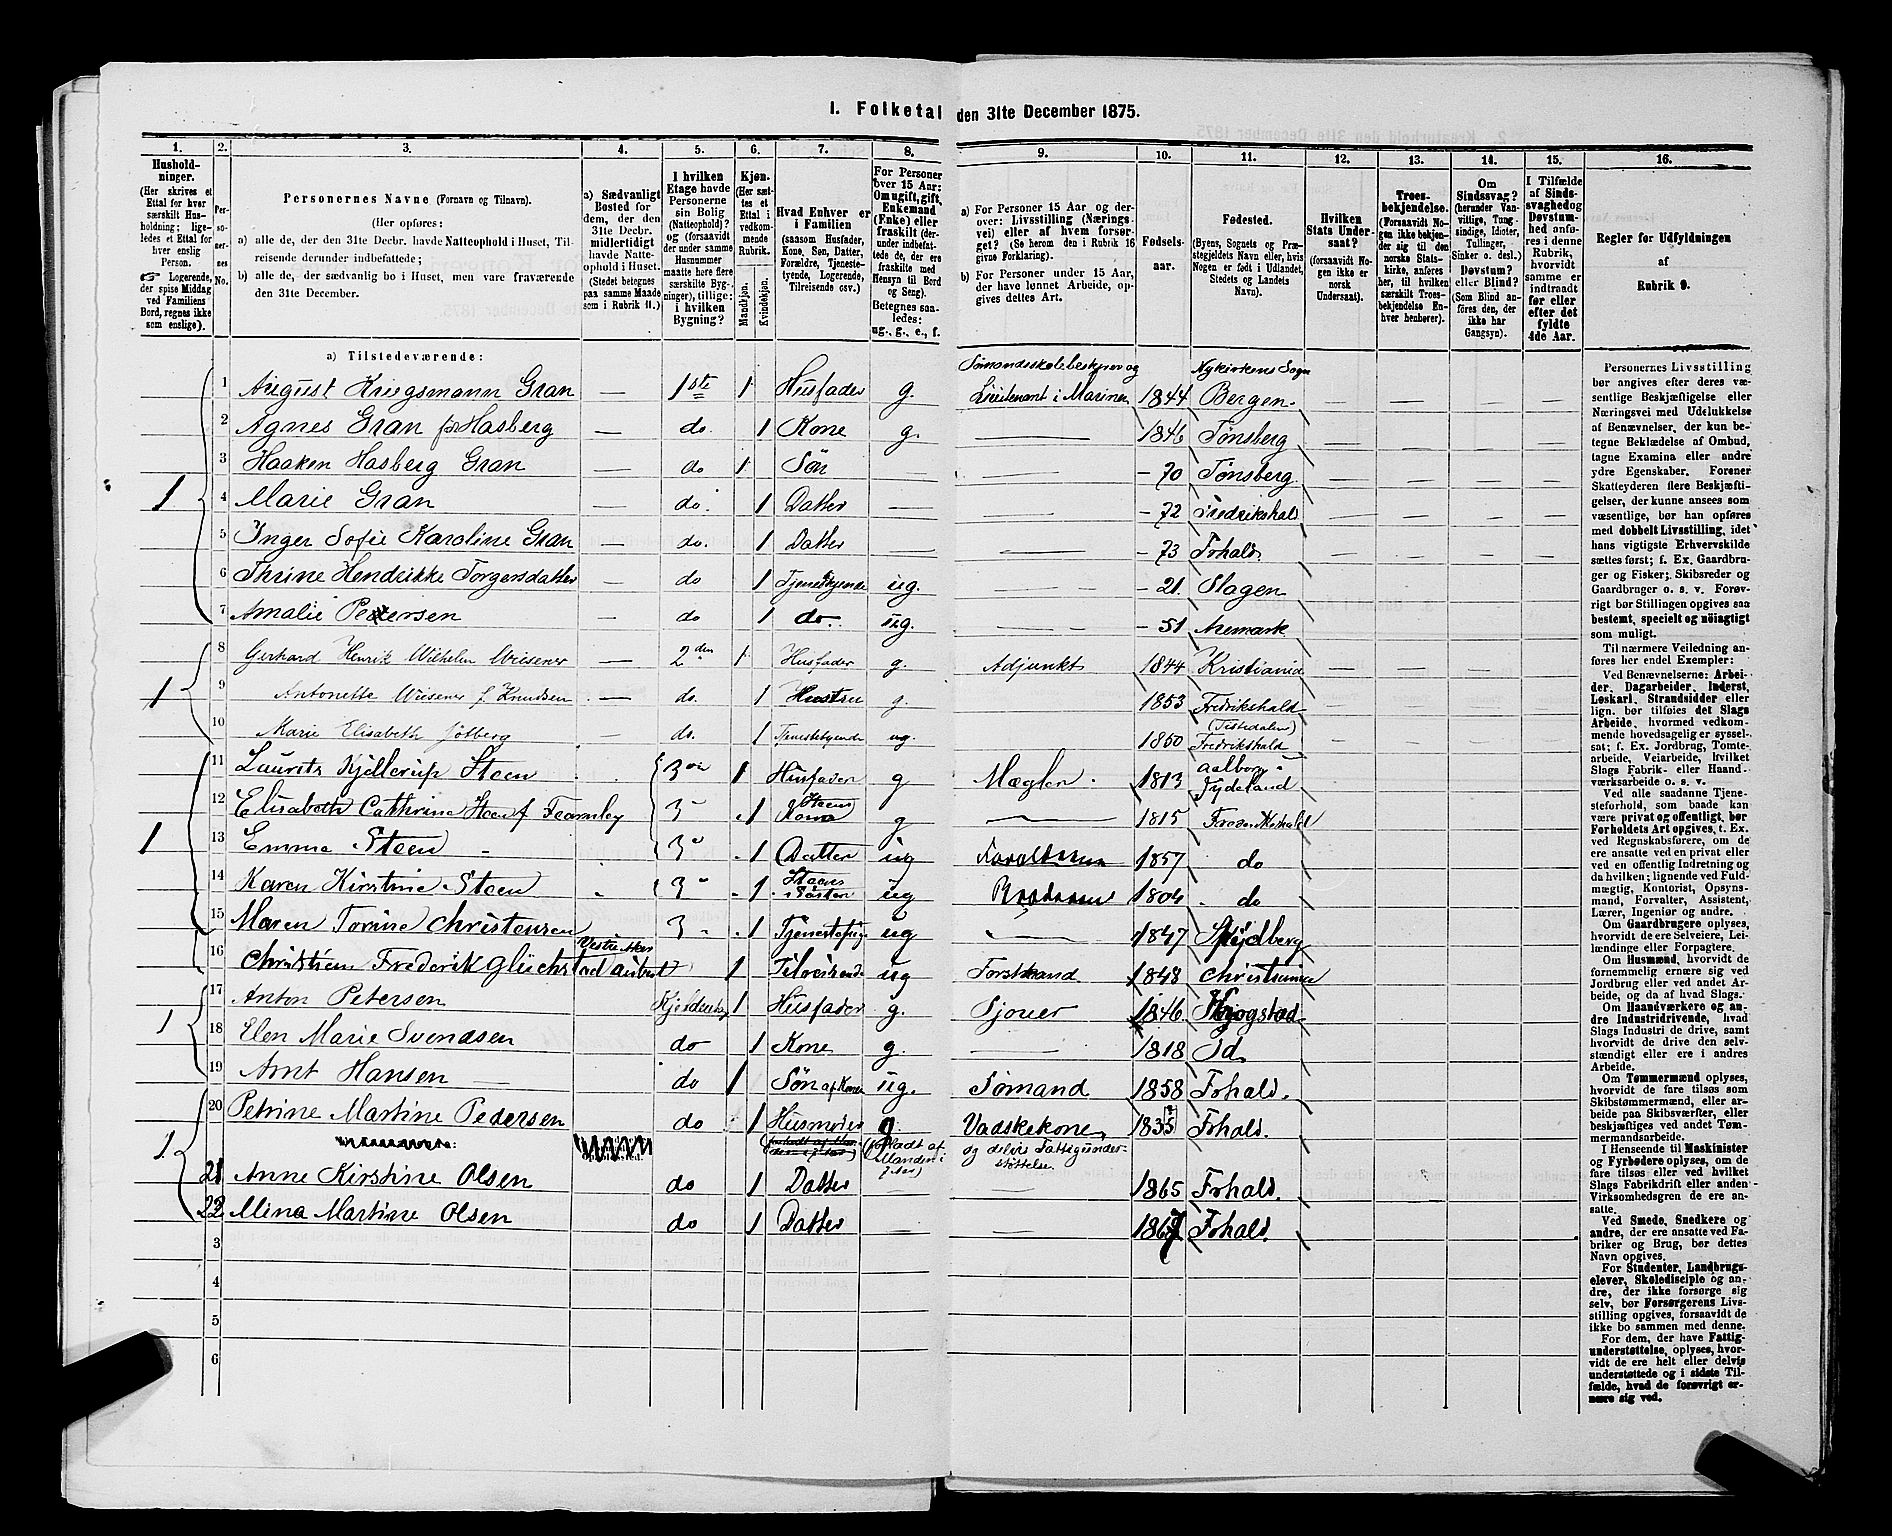 I. Folketal den 31te December 1875.
1. 2. 3. 4. 5. 6. 7. 8. 9. 10. 11. 12. 13. 14. 15. 16.
Husholdninger. (Her skrives et Ettal for hver særskilt Husholdning; ligeledes et Ettal for hver enslig Person. ☞ Logerende, der spise Middag ved Familiens Bord, regnes ikke som enslige).
Personernes No.
Personernes Navne (Fornavn og Tilnavn).
(Her opføres:
a) alle de, der den 31te Decbr. havde Natteophold i Huset, Tilreisende derunder indbefattede;
b) alle de, der sædvanlig bo i Huset, men vare fraværende den 31te December.
a) Sædvanligt Bosted for dem, der den 31te Decbr. midlertidigt havde Natteophold i Huset. (Stedet betegnes paa samme Maade som i Rubrik 11.)
I hvilken Etage havde Personerne sin Bolig (Natteophold)? og (forsaavidt der under samme Husnummer maatte høre flere særskilte Bygninger), tillige: i hvilken Bygning?
Kjøn. (Her sættes et Ettal i vedkommende Rubrik.
Mandkjøn. Kvindekjøn.
Hvad Enhver er i Familien (saasom Husfader, Kone, Søn, Datter, Forældre, Tjenestetyende, Logerende, Tilreisende osv.)
For Personer over 15 Aar: Om ugift, gift, Enkemand (Enke) eller fraskilt (derunder indbefattede de, der ere fraskilte med Hensyn til Bord og Seng). Betegnes saaledes: ug., g., e., f.
a) For Personer 15 Aar og derover: Livsstilling (Næringsvei) eller af hvem forsørget? (Se herom den i Rubrik 16 givne Forklaring).
b) For Personer under 15 Aar, der have lønnet Arbeide, opgives dettes Art.
Fødselsaar.
Fødested. (Byens, Sognets og Præstegjeldets Navn eller, hvis Nogen er født i Udlandet, Stedets og Landets Navn).
Hvilken Stats Undersaat? (forsaavidt Nogen ikke er norsk Undersaat).
Troesbekjendelse. (Forsaavidt Nogen ikke bekjender sig til den norske Statskirke, anføres her, til hvilken særskilt Troesbekjendelse Enhver henhører).
Om Sindssvag? (herunder Vanvittige, Tungsindige, Idioter, Tullinger, Sinker o. desl.) Døvstum? eller Blind? (Som Blind anføres den, der ikke har Gangsyn).
I Tilfælde af Sindssvaghed og Døvstumhed anføres i denne Rubrik, hvorvidt samme er indtraadt før eller efter det fyldte 4de Aar.
Regler for Udfyldningen af Rubrik 9.
a) Tilstedeværende:
1 August Kriegsmann Gran — 1ste 1 Husfader g. Sømandsskolebestyrer og Lieutenant i Marinen 1844 Nykirkens Sogn Bergen.
2 Agnes Gran f. Hasberg — do. 1 Kone g. — 1846 Tønsberg
3 Haaken Hasberg Gran — do 1 Søn — - 70 Tønsberg
1 4 Marie Gran — do. 1 Datter — — - 72 Fredrikshald
5 Inger Sofie Karoline Gran — do. 1 Datter — — - 73 Frhald.
6 Thrine Hendrikke Torgersdatter — do 1 Tjenestetyende ug. — - 21 Slagen
7 Amalie Petersen — do 1 do. ug. — - 51 Aremark
8 Gerhard Henrik Wilhelm Wiesener — 2den 1 Husfader g. Adjunkt 1844 Kristiania
1 9 Antonette Wiesener f. Knudsen — do. 1 Hustru g. 1853 Fredrikshald
10 Marie Elisabeth do. 1 Tjenestetyende ug. 1850 (Tistedalen) Fredrikshald
11 Laurits Kjellerup Steen 3die 1 Husfader g Mægler 1813 Aalborg Jydeland
12 Elisabeth Cathrine Steen f Fearnley 3 1 Steens Kone g — 1815 Frederikshald
1 13 Emma Steen 3 1 Datter ug 1857 do
14 Karen Kirstine Steen 3 1 Steens Søster ug 1804 do
15 Maren Torine Christensen 3 1 Tjenestepige ug 1847 Spydberg
16 Christian Frederik Glückstad aubert 1 Tilreisende ug Forstmand 1848 Christiania
17 Anton Petersen 1 Husfader g. Sjouer 1846
1 18 Elen Marie Svendsen do 1 Kone g. — 1818 Id
19 Arnt Hansen — do 1 Søn af Kone ug. Sømand 1858 Frhald.
20 Petrine Martine Pedersen do 1 Husmoder g Vadskekone 1835 Frhald.
1 (forladt af Manden i 7 Aar) og delvis Fattigunderstøttelse
21 Anne Kirstine Olsen do 1 Datter — 1865 Frhald.
22 Mina Martine Olsen do 1 Datter — — 1867 Frhald.
3
4
5
6
Personernes Livsstilling
bør angives efter deres væsentlige Beskjæftigelse eller
Næringsvei med Udelukkelse
af Benævnelser, der kun betegne Beklædelse af Ombud,
tagne Examina eller andre
ydre Egenskaber. Forener
Skatteyderen flere Beskjæftigelser, der kunne ansees som
væsentlige, bør han opføres
med dobbelt Livsstilling, idet
hans vigtigste Erhvervskilde
sættes først; f. Ex. Gaardbruger og Fisker; Skibsreder og
Gaardbruger o. s. v. Forøvrigt bør Stillingen opgives saa
bestemt, specielt og nøiagtigt
som muligt.
Til nærmere Veiledning anføres her endel Exempler:
Ved Benævnelserne: Arbeider, Dagarbeider, Inderst,
Løskarl, Strandsidder eller
lign. bør tilføies det Slags
Arbeide, hvormed vedkommende hovedsagelig er sysselsat; f. Ex. Jordbrug, Tomtearbeide, Veiarbeide, hvilket
Slags Fabrik- eller Haandværksarbeide o. s. v.
Ved alle saadanne Tjenesteforhold, som baade kan
være privat og offentligt, bør
Forholdets Art opgives, t. Ex.
ved Regnskabsførere, om de
ere ansatte ved en privat eller
ved en offentlig Indretning og
da hvilken; lignende ved Fuldmægtig, Kontorist, Opsynsmand, Forvalter, Assistent,
Lærer, Ingeniør og andre.
Om Gaardbrugere oplyses,
hvorvidt de ere Selveiere, Leilændinge eller Forpagtere.
Om Husmænd, hvorvidt de
fornemmelig ernære sig ved
Jordbrug eller ved andet Arbeide, og da af hvad Slags.
Om Haandværkere og andre Industridrivende, hvad
Slags Industri de drive, samt
hvorvidt de drive den selvstændigt eller ere i andres
Arbeide.
Om Tømmermænd oplyses,
hvorvidt de fare tilsøs som
Skibstømmermænd, eller arbeide paa Skibsværfter, eller
beskjæftiges ved andet Tømmermandsarbeide.
I Henseende til Maskinister
og Fyrbødere oplyses, om de
fare tilsøs eller ved hvilket
Slags Fabrikdrift eller anden
Virksomhedsgren de ere ansatte.
Ved Smede, Snedkere og
andre, der ere ansatte ved Fabriker og Brug, bør dettes
Navn opgives.
For Studenter, Landbrugselever, Skoledisciple og andre, der ikke forsørge sig
selv, bør Forsørgerens Livsstilling opgives, forsaavidt de
ikke bo sammen med denne.
For dem, der have Fattigunderstøttelse, oplyses, hvorvidt de ere helt eller delvis
understøttede og i sidste Tilfælde, hvad de forøvrigt ernære sig ved.